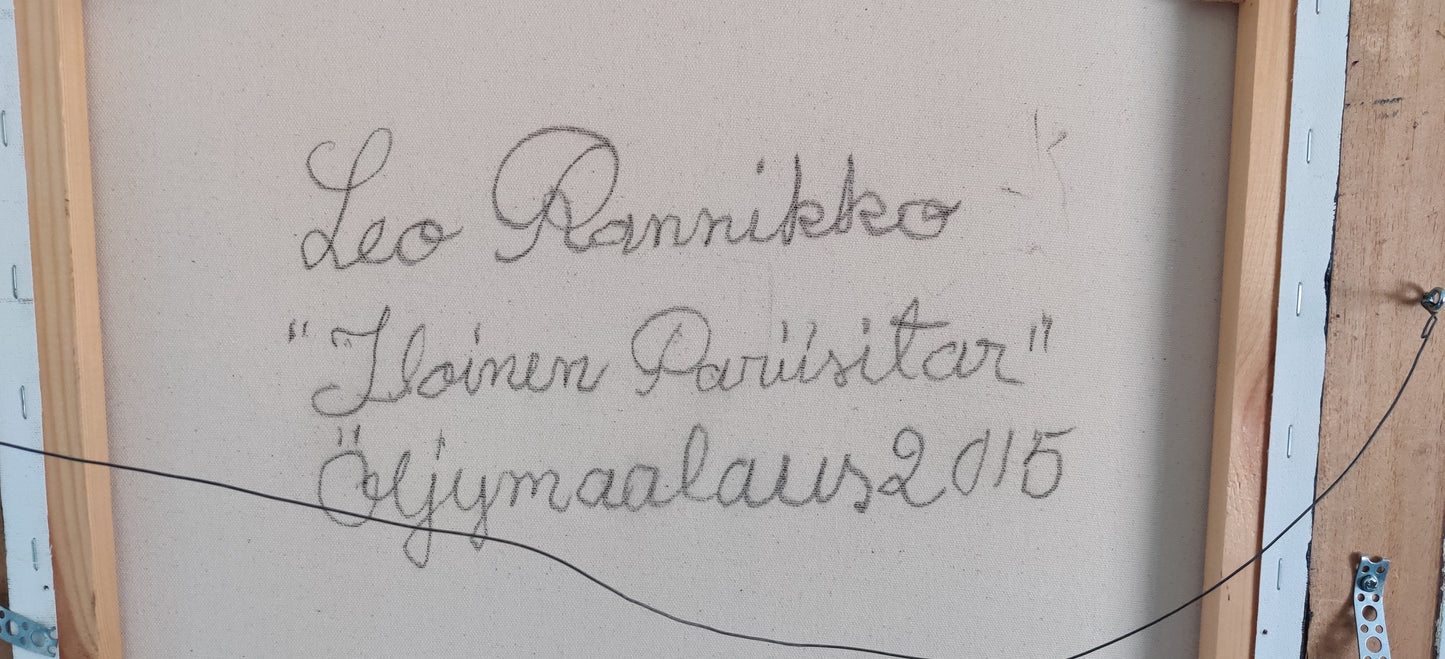 Leo Rannikko
"Iloinen Pariisitar"
Öljymaalaus 2015